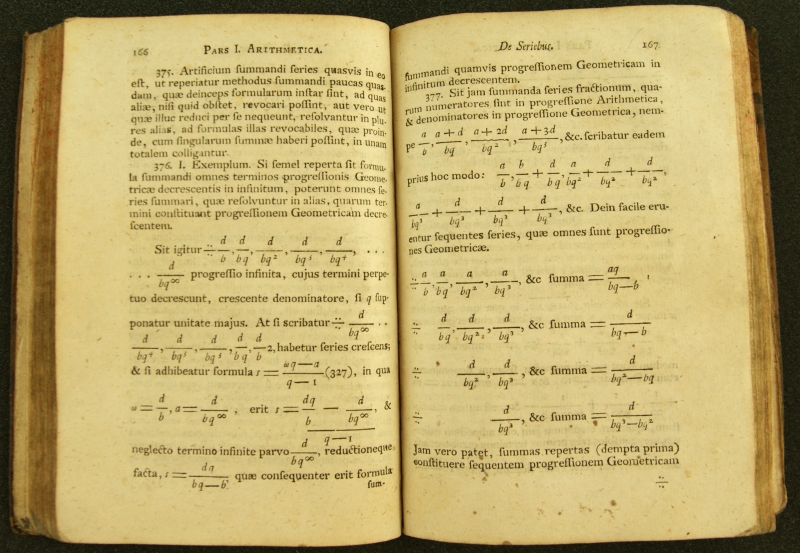 166 PARS I. ARITHMETICA.
375. Artificium ſummandi ſeries quasvis in eo
eſt, ut reperiatur methodus ſummandi paucas quas-
dam, quæ deinceps formularum inſtar ſint, ad quas
aliæ, niſi quid obſtet, revocari poſſint, aut vero ut
quæ illuc reduci per ſe nequeunt, reſolvantur in plu-
res alias, ad formulas illas revocabiles, quæ proin-
de, cum ſingularum ſummæ haberi poſſint, in unam
totalem colligantur.
376. I. Exemplum. Si ſemel reperta ſit formu-
la ſummandi omnes terminos progreſſionis Geome-
tricæ decreſcentis in infinitum, poterunt omnes ſe-
ries ſummari, quæ reſolvuntur in alias, quarum ter-
mini conſtituant progreſſionem Geometricam decre-
ſcentem.
Sit igitur ∺ d/b, d/bq, d/bq², d/bq³, d/bq⁴, . . .
. . . d/bq^∞ progreſſio infinita, cujus termini perpe-
tuo decreſcunt, creſcente denominatore, ſi q ſup-
ponatur unitate majus. At ſi scribatur ∺ d/bq^∞ . .
d/bq⁴, d/bq³, d/bq², d/bq, d/b, habetur ſeries creſcens;
& ſi adhibeatur formula s = (ωq — a)/(q — 1) (327), in qua
ω = d/b, a = d/bq^∞, erit s = (dq/b — d/bq^∞)/(q — 1), &
neglecto termino infinite parvo d/bq^∞, reductioneque
facta, s = dq/(bq — b) quæ conſequenter erit formula
ſum-
De Seriebus. 167
ſummandi quamvis progreſſionem Geometricam in
infinitum decreſcentem.
377. Sit jam ſummanda ſeries fractionum, qua-
rum numeratores ſint in progreſſione Arithmetica,
& denominatores in progreſſione Geometrica, nem-
pe a/b, (a + d)/bq, (a + 2d)/bq², (a + 3d)/bq³, &c. ſcribatur eadem
prius hoc modo: a/b, b/bq + d/bq, a/bq² + d/bq² + d/bq²,
a/bq³ + d/bq³ + d/bq³ + d/bq³, &c. Dein facile eru-
entur ſequentes ſeries, quæ omnes ſunt progreſſio-
nes Geometricæ.
∺ a/b, a/bq, a/bq², a/bq³, &c ſumma = aq/(bq — b),
∺ d/bq, d/bq², d/bq³, &c ſumma = d/(bq — b)
∺ d/bq², d/bq³, &c ſumma = d/(bq² — bq)
∺ d/bq³, &c ſumma = d/(bq³ — bq²)
Jam vero patet, ſummas repertas (dempta prima)
conſtituere ſequentem progreſſionem Geometricam
∺